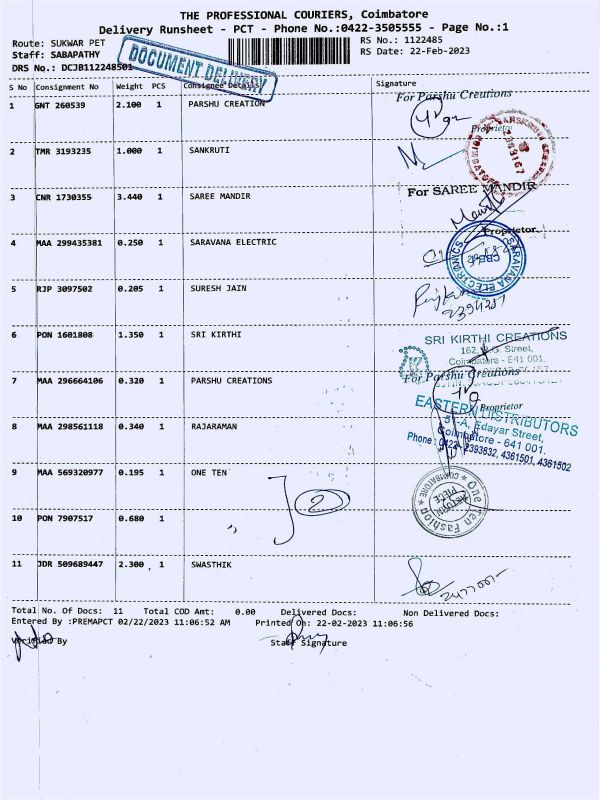 THE PROFESSIONAL COURIERS, Coimbatore
Delivery Runsheet - PCT - Phone No.:0422-3505555 - Page No.:1
Route: SUKWAR PET
RS No.: 1122485
Staff: SABAPATHY
RS Date: 22-Feb-2023
DRS No.: DCJB112248501
DOCUMENT DELIVERY
S No Consignment No Weight PCS Consignee Details Signature
1 GNT 260539 2.100 1 PARSHU CREATION
For Parshu Creations
Proprietor
2 TMR 3193235 1.000 1 SANKRUTI
3 CNR 1730355 3.440 1 SAREE MANDIR
For SAREE MANDIR
Proprietor
4 MAA 299435381 0.250 1 SARAVANA ELECTRIC
SARAVANA ELECTRONICS
5 RJP 3097502 0.205 1 SURESH JAIN
6 PON 1601808 1.350 1 SRI KIRTHI
SRI KIRTHI CREATIONS
162, R.G. Street,
Coimbatore - 641 001.
7 MAA 296664106 0.320 1 PARSHU CREATIONS
For Parshu Creations
Proprietor
8 MAA 298561118 0.340 1 RAJARAMAN
EASTERN DISTRIBUTORS
51-A, Edayar Street,
Coimbatore - 641 001.
Phone : 0422 - 2393832, 4361501, 4361502
9 MAA 569320977 0.195 1 ONE TEN
One Ten Fashion
COIMBATORE
2
10 PON 7907517 0.680 1 ,,
11 JDR 509689447 2.300 1 SWASTHIK
Total No. Of Docs: 11 Total COD Amt: 0.00 Delivered Docs: Non Delivered Docs:
Entered By :PREMAPCT 02/22/2023 11:06:52 AM Printed On: 22-02-2023 11:06:56
Verified By Staff Signature